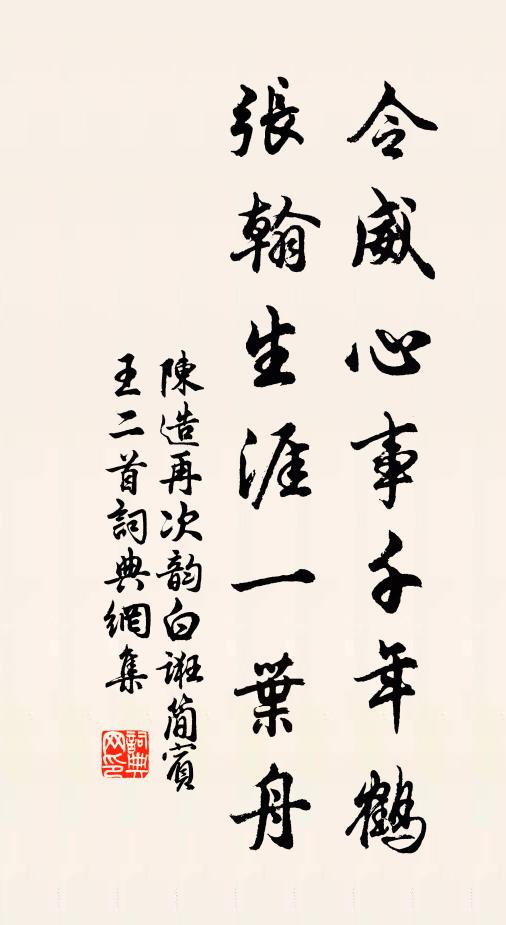 令威心事千年鶴
張翰生涯一葉舟
陳造再次韵自誑簡賓
王二首詞典網集
詞典网印